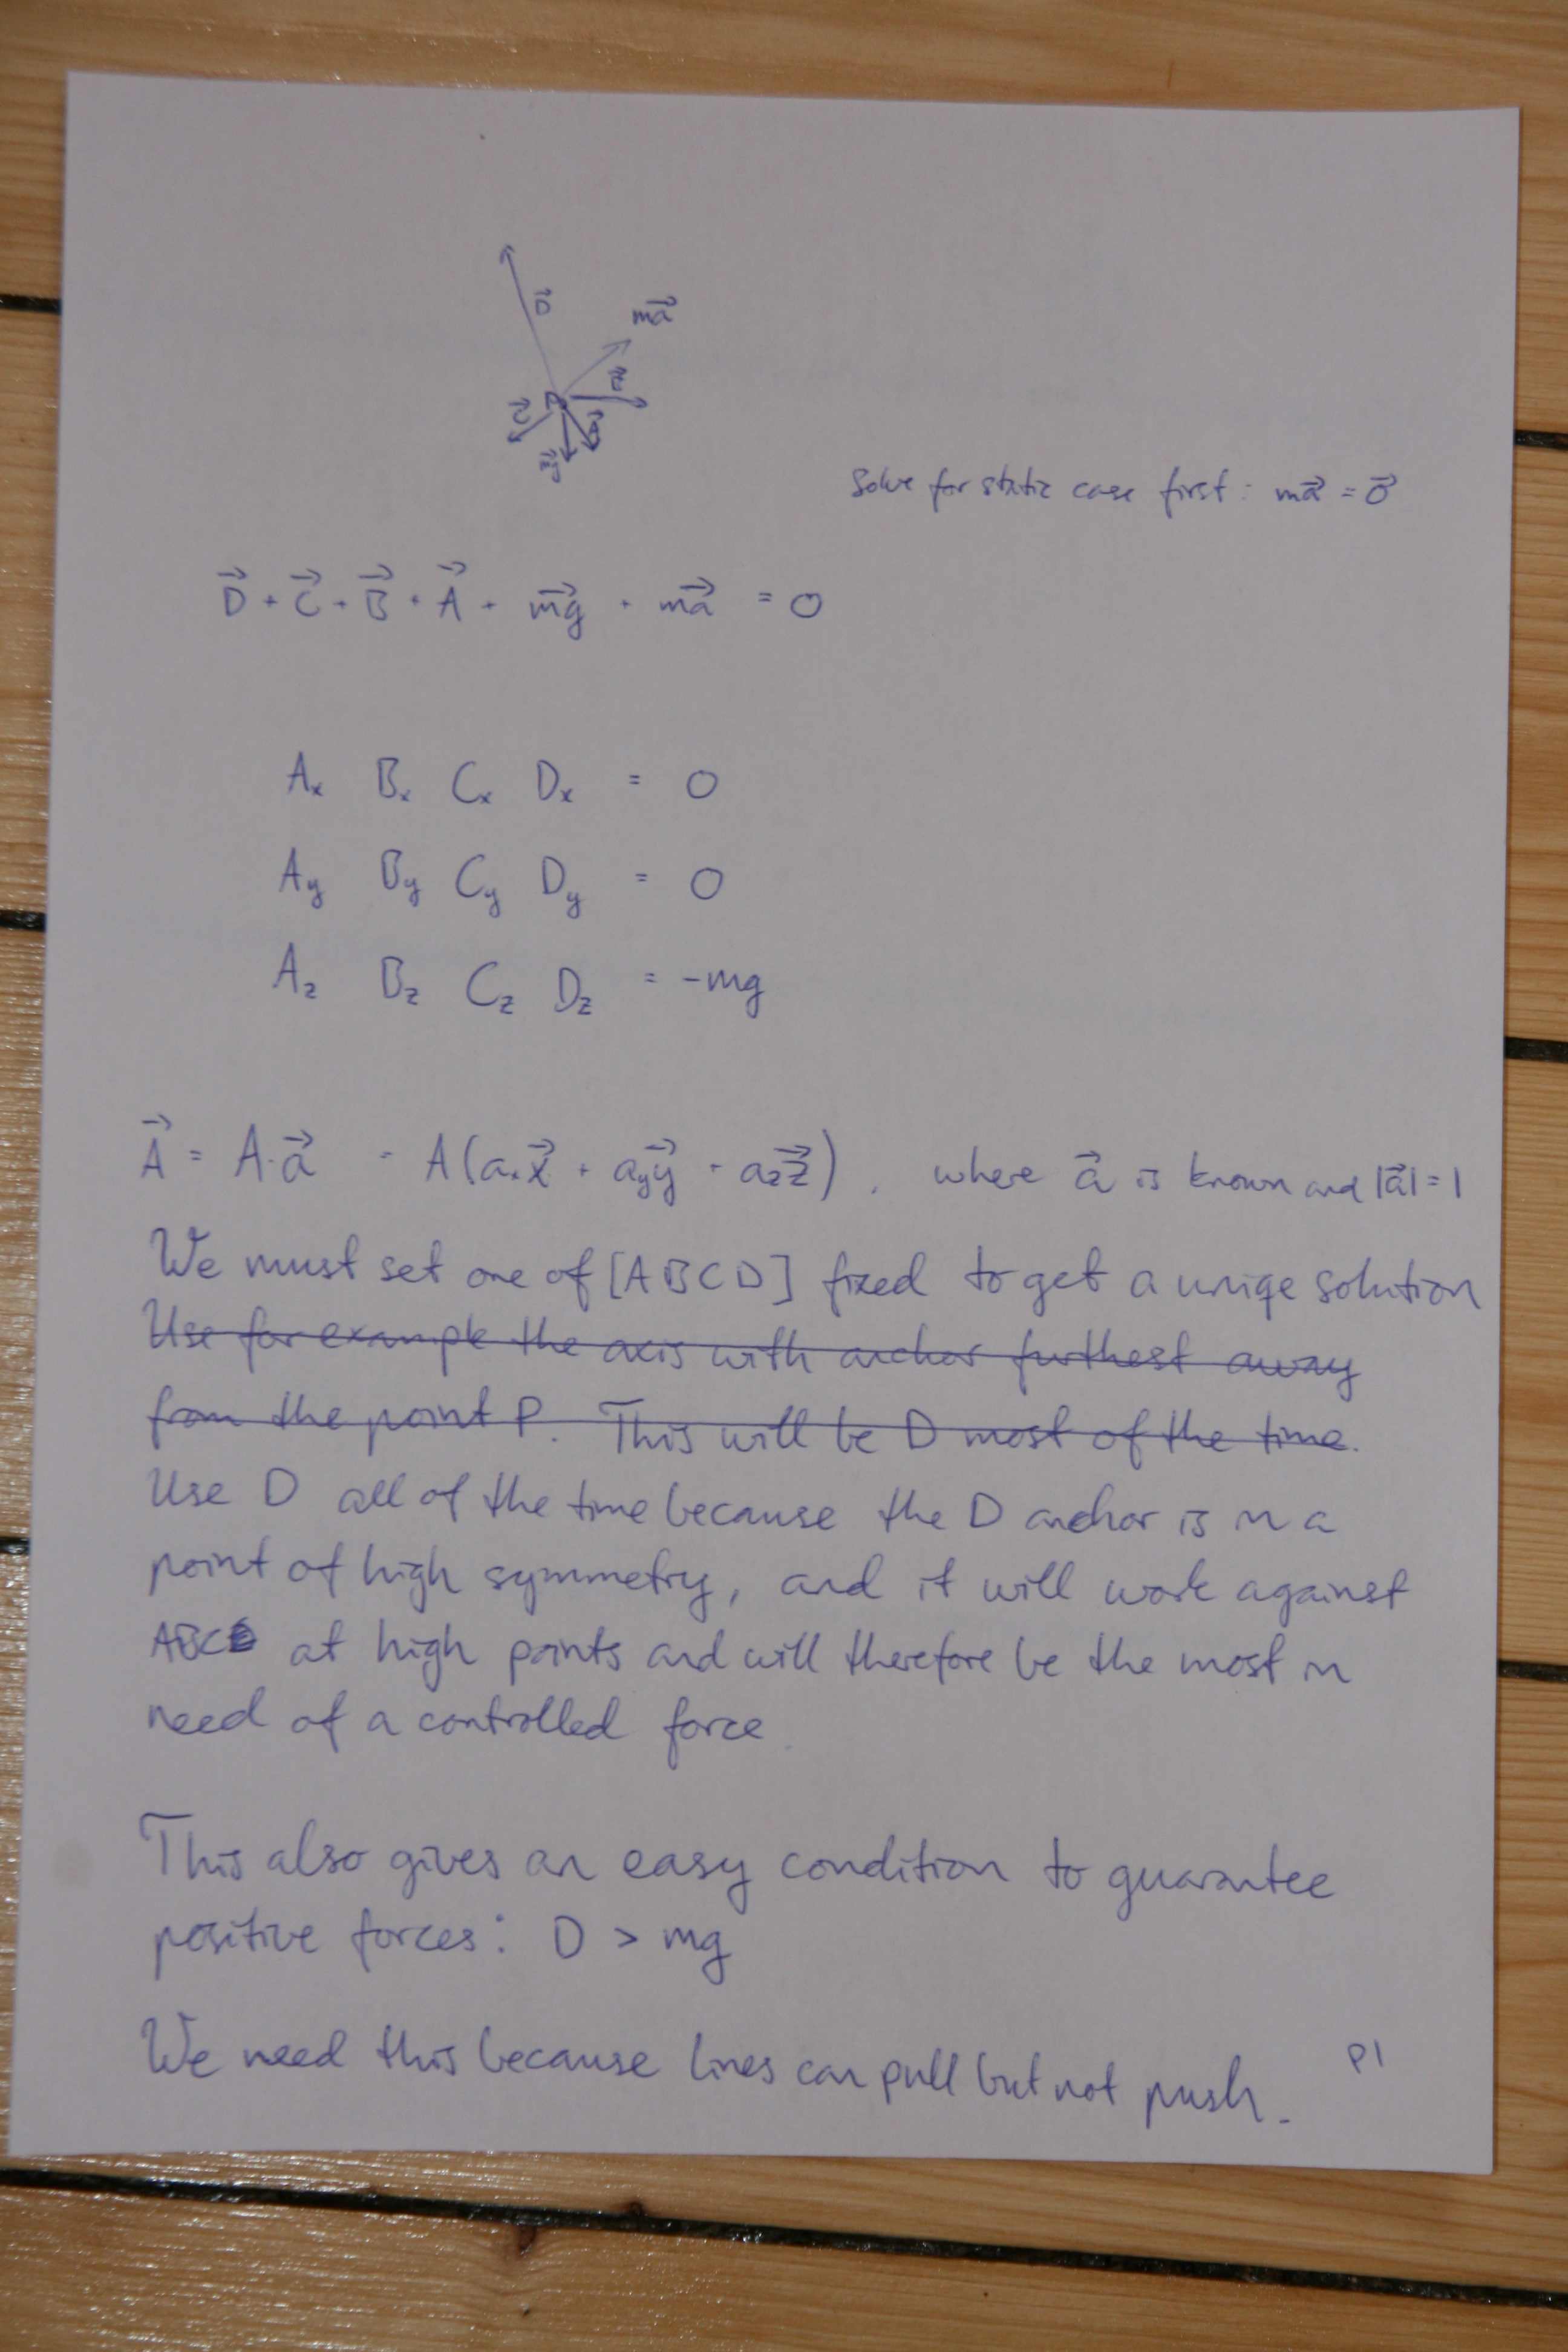 D⃗
ma⃗
B⃗
P
C⃗
A⃗
mg⃗
Solve for static case first: ma⃗ = 0⃗
D⃗ + C⃗ + B⃗ + A⃗ + mg⃗ + ma⃗ = 0
Aₓ Bₓ Cₓ Dₓ = 0
A_y B_y C_y D_y = 0
A_z B_z C_z D_z = -mg
A⃗ = A·a⃗ = A(aₓx⃗ + a_yy⃗ + a_zz⃗), where a⃗ is known and |a⃗| = 1
We must set one of [ABCD] fixed to get a uniqe solution
Use for example the axis with anchor furthest away
from the point P. This will be D most of the time.
Use D all of the time because the D anchor is in a
point of high symmetry, and it will work against
ABC at high points and will therefore be the most in
need of a controlled force.
This also gives an easy condition to guarantee
positive forces: D > mg
We need this because lines can pull but not push.
P1